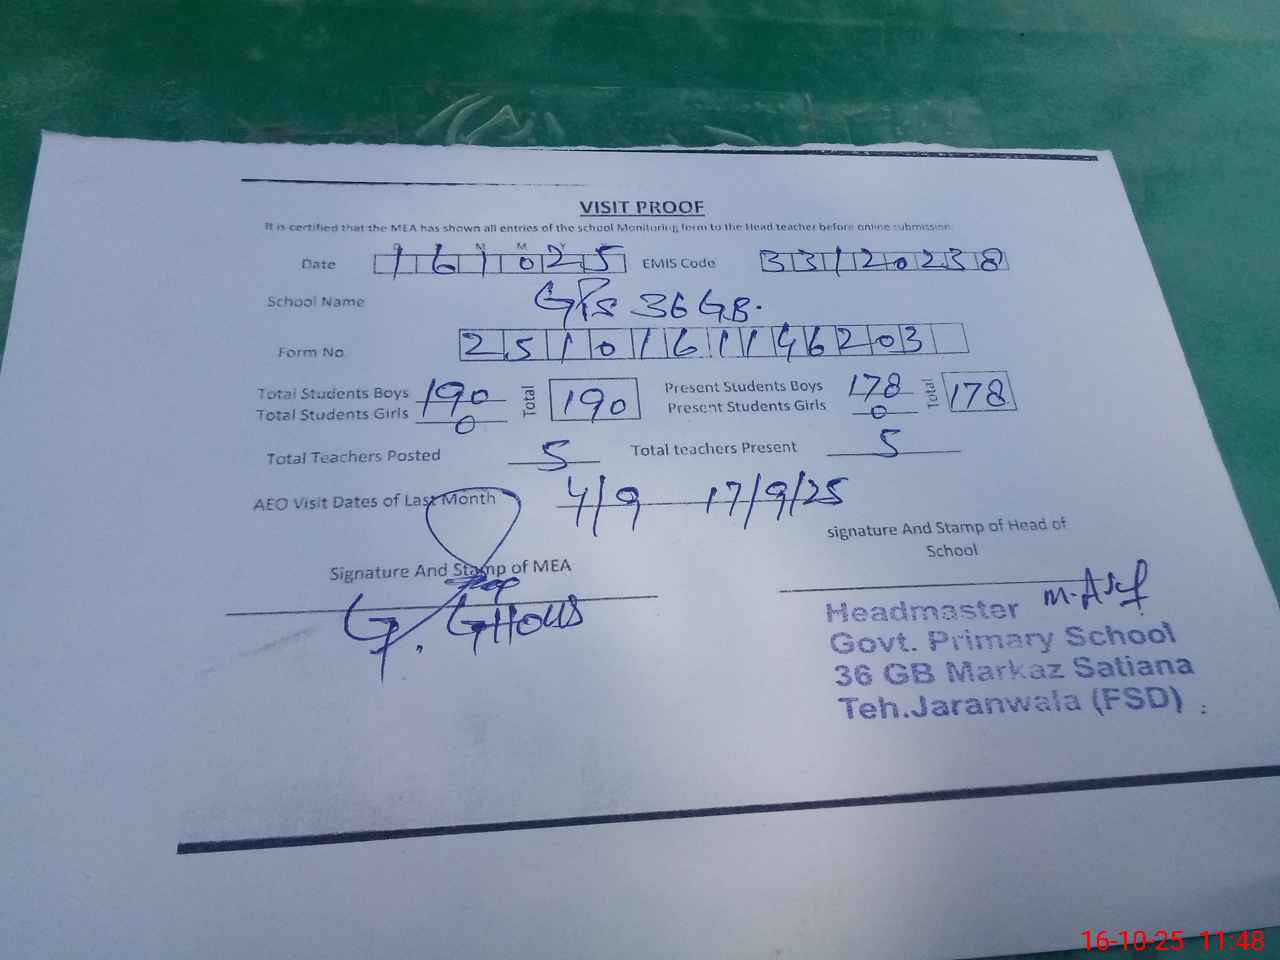 VISIT PROOF
It is certified that the MEA has shown all entries of the school Monitoring form to the Head teacher before online submission.
Date 161025 EMIS Code 33120238
School Name GPS 36 GB.
Form No. 2510161146203
Total Students Boys 190 Total 190 Present Students Boys 178 Total 178
Total Students Girls 0 Present Students Girls 0
Total Teachers Posted 5 Total teachers Present 5
AEO Visit Dates of Last Month 4/9 17/9/25
signature And Stamp of Head of
School
Signature And Stamp of MEA
G. GHOUS
M. Asif
Headmaster
Govt. Primary School
36 GB Markaz Satiana
Teh.Jaranwala (FSD)
16-10-25 11:48